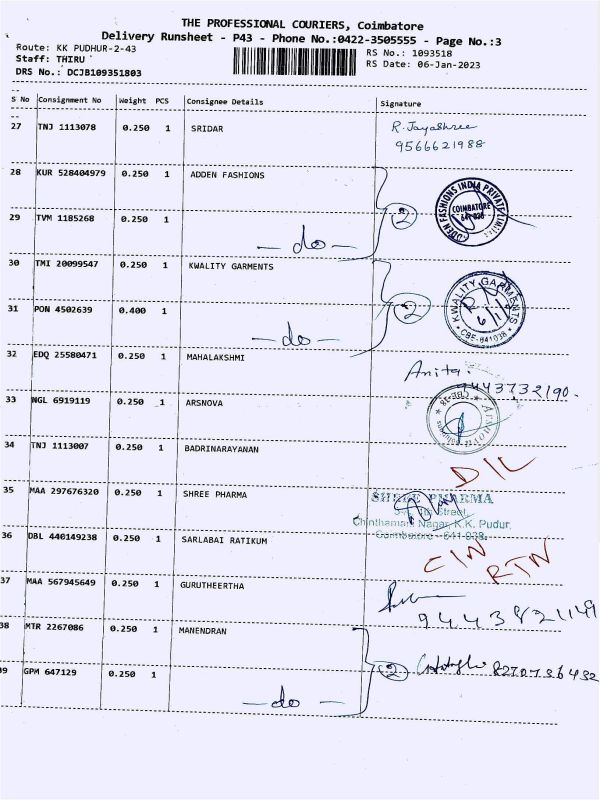 THE PROFESSIONAL COURIERS, Coimbatore
Delivery Runsheet - P43 - Phone No.:0422-3505555 - Page No.:3
Route: KK PUDHUR-2-43
RS No.: 1093518
Staff: THIRU
RS Date: 06-Jan-2023
DRS No.: DCJB109351803
S No Consignment No Weight PCS Consignee Details Signature
27 TNJ 1113078 0.250 1 SRIDAR R. Jayashree
9566621988
28 KUR 528404979 0.250 1 ADDEN FASHIONS
ADDEN FASHIONS INDIA PRIVATE LIMITED
COIMBATORE
641 038
2
29 TVM 1185268 0.250 1
- do -
30 TMI 20099547 0.250 1 KWALITY GARMENTS
KWALITY GARMENTS
CBE-641038
6/1
2
31 PON 4502639 0.400 1
- do -
32 EDQ 25580471 0.250 1 MAHALAKSHMI Anita.
9443732190.
33 NGL 6919119 0.250 1 ARSNOVA
Arsnova
CBE-38
34 TNJ 1113007 0.250 1 BADRINARAYANAN
D/L
35 MAA 297676320 0.250 1 SHREE PHARMA
SHREE PHARMA
Street,
Chinthamani Nagar, K.K. Pudur,
Coimbatore - 641 038.
36 DBL 440149238 0.250 1 SARLABAI RATIKUM
C/N
RTN
37 MAA 567945649 0.250 1 GURUTHEERTHA
9443821149
38 MTR 2267086 0.250 1 MANENDRAN
2 8270736432
39 GPM 647129 0.250 1
- do -